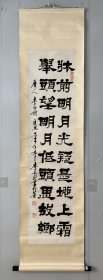 牀前明月光疑是地上霜
舉頭望明月低頭思故鄉
唐人李白詩